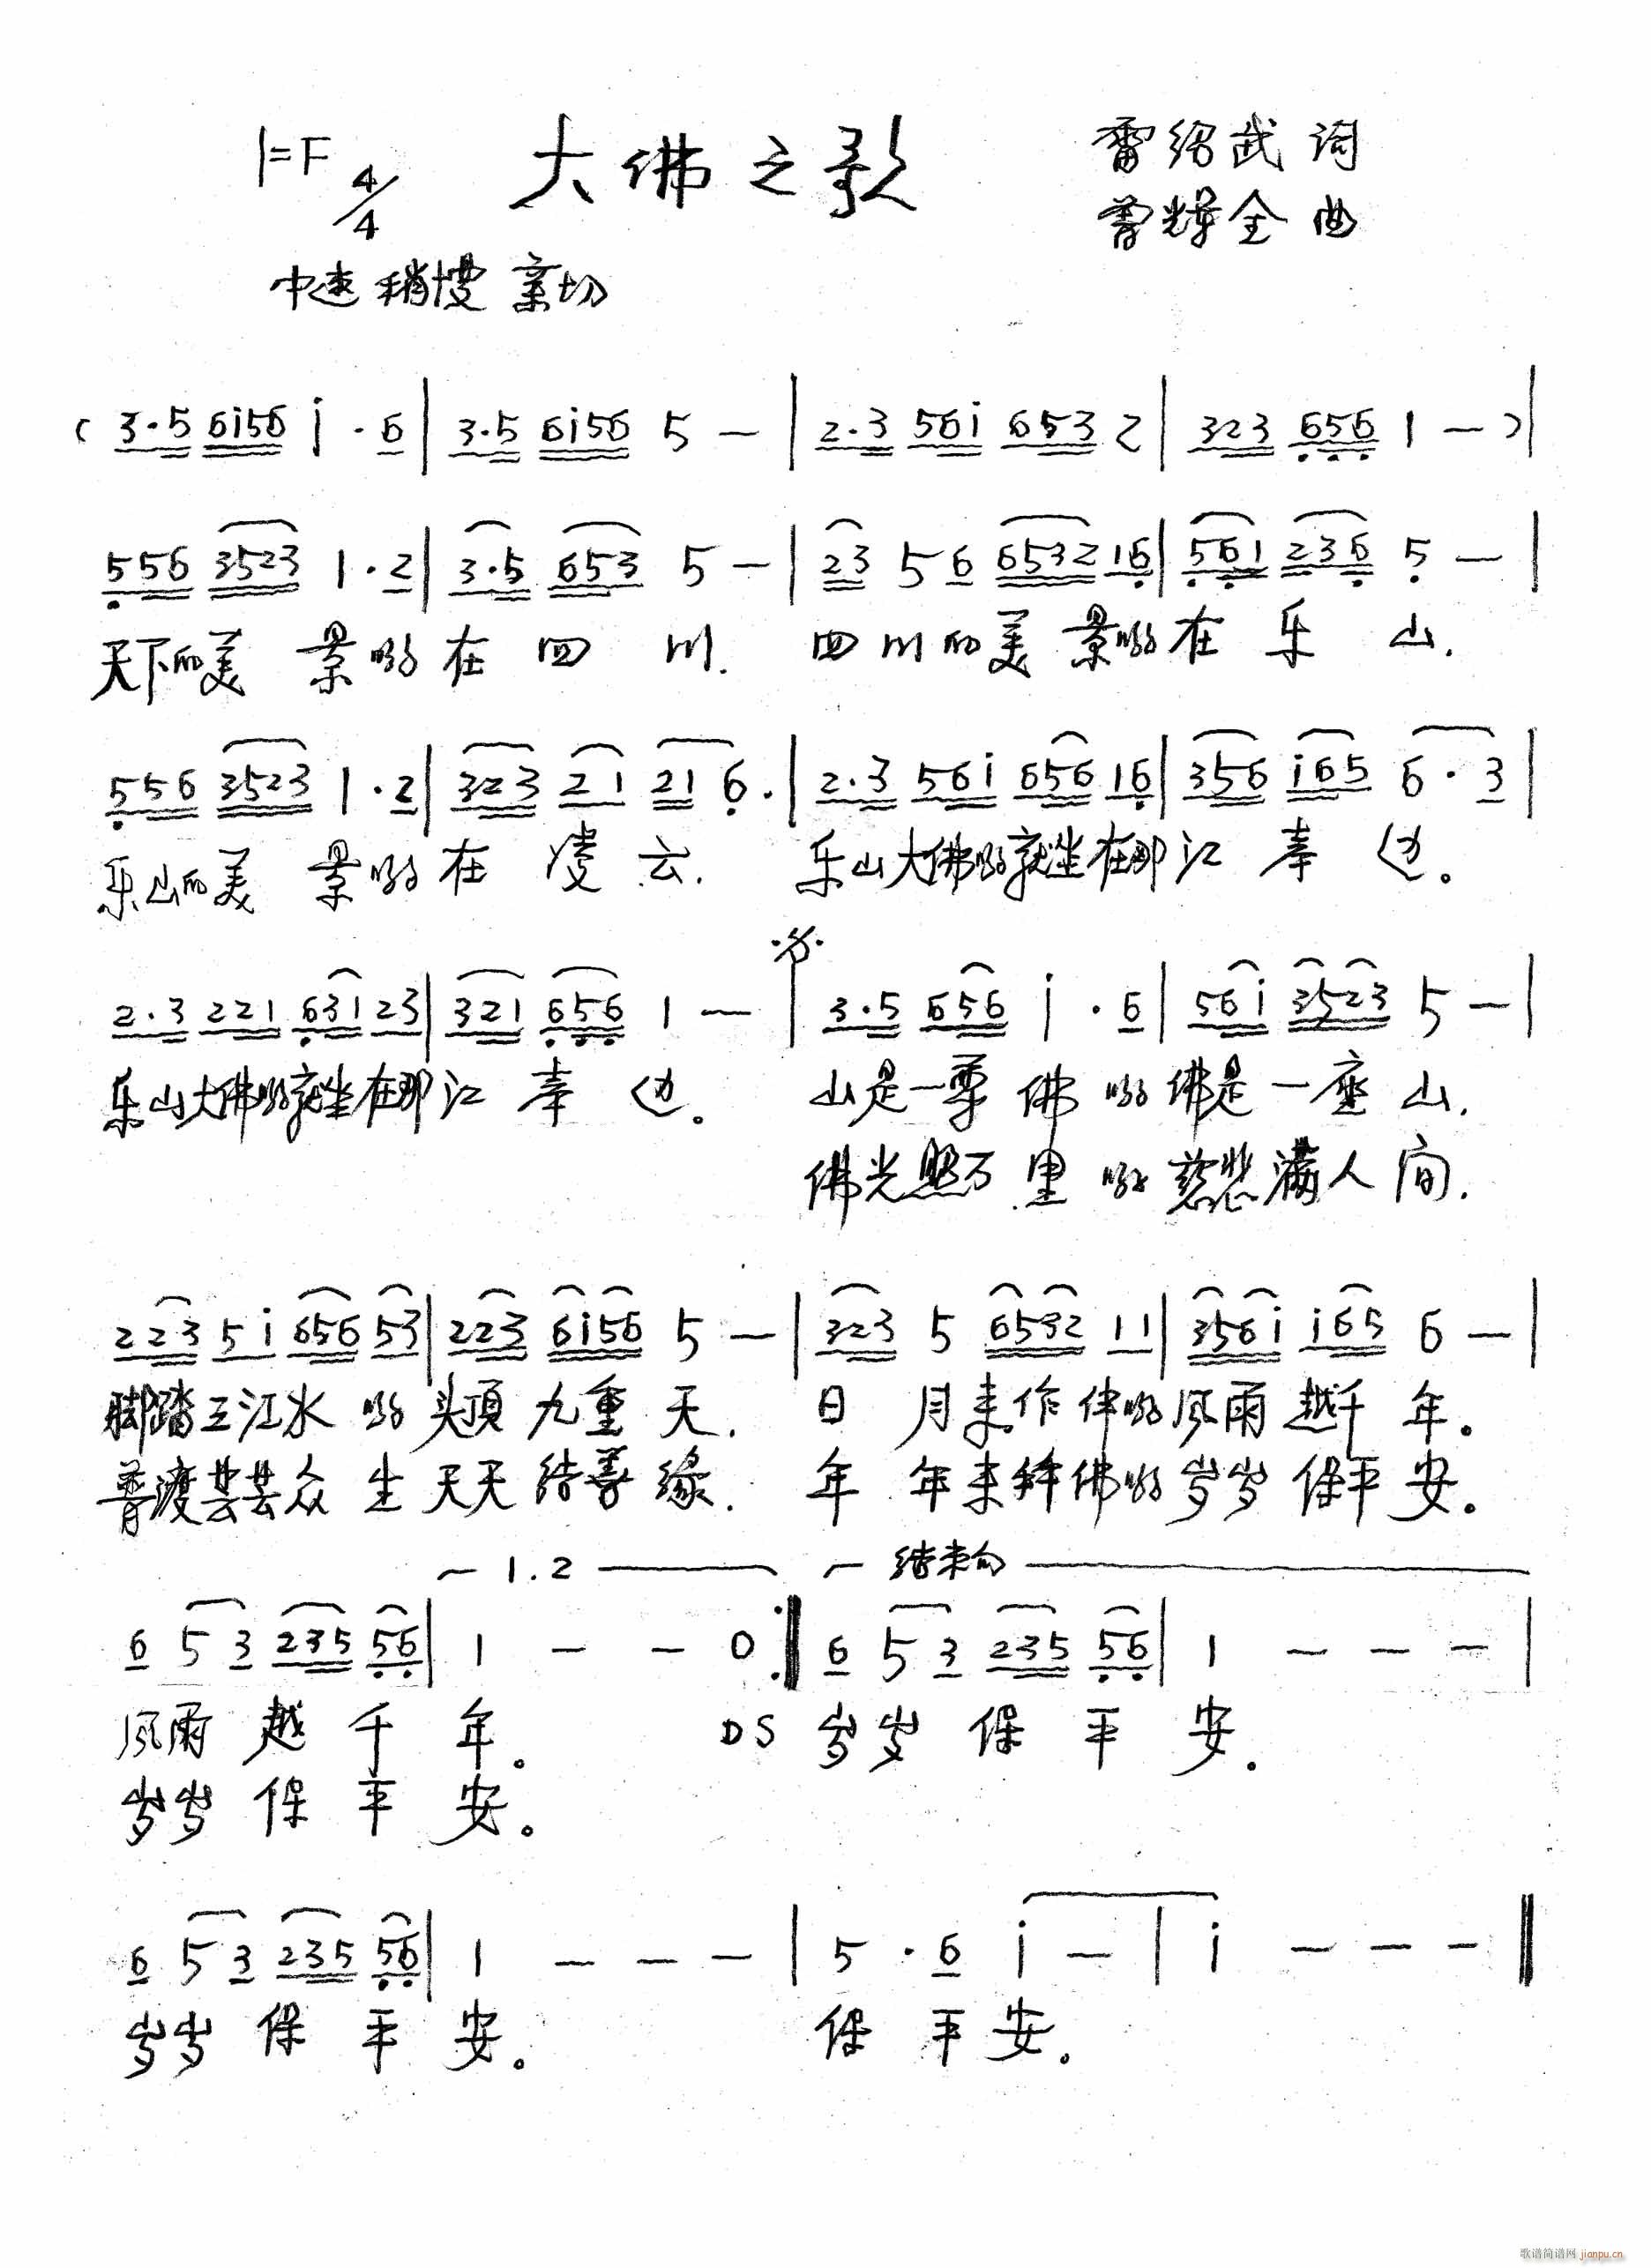 1=F 4/4 大佛之歌 雷绍武 词
曾辉全 曲
中速 稍慢 亲切
( 3·5 6i56 i · 6 | 3·5 6i56 5 — | 2·3 56i 653 2 | 323 656 1 — ) |
556 3523 1·2 | 3·5 653 5 — | 23 5 6 6532 16 | 561 236 5 — |
天下的美 景哟 在 四 川. 四 川的美 景哟 在 乐 山.
556 3523 1·2 | 323 21 21 6· | 2·3 56i 656 16 | 356 i65 6·3 |
乐山的美 景哟 在 凌 云. 乐山大佛哟就坐在那江 岸 边。
2·3 221 631 23 | 321 656 1 — | 3·5 656 i · 6 | 56i 3523 5 — |
乐山大佛哟就坐在那江 岸 边。 山是一尊 佛 哟 佛是一座 山.
佛光照万 里 哟 慈悲满人 间.
223 5i 656 53 | 223 6i56 5 — | 323 5 6532 11 | 356i i65 6 — |
脚踏三江水 哟 头顶 九重 天. 日 月来作 伴哟 风雨 越千 年。
普渡芸芸众 生 天天 结善 缘. 年 年来拜佛哟 岁岁 保平 安。
1.2 结束句
6 5 3 235 56 | 1 — — 0 :| 6 5 3 235 56 | 1 — — — |
风雨 越 千 年。 DS 岁岁 保 平 安.
岁岁 保 平 安。
6 5 3 235 56 | 1 — — — | 5 · 6 i — | i — — — ‖
岁岁 保 平 安。 保 平 安。
歌谱简谱网 jianpu.cn